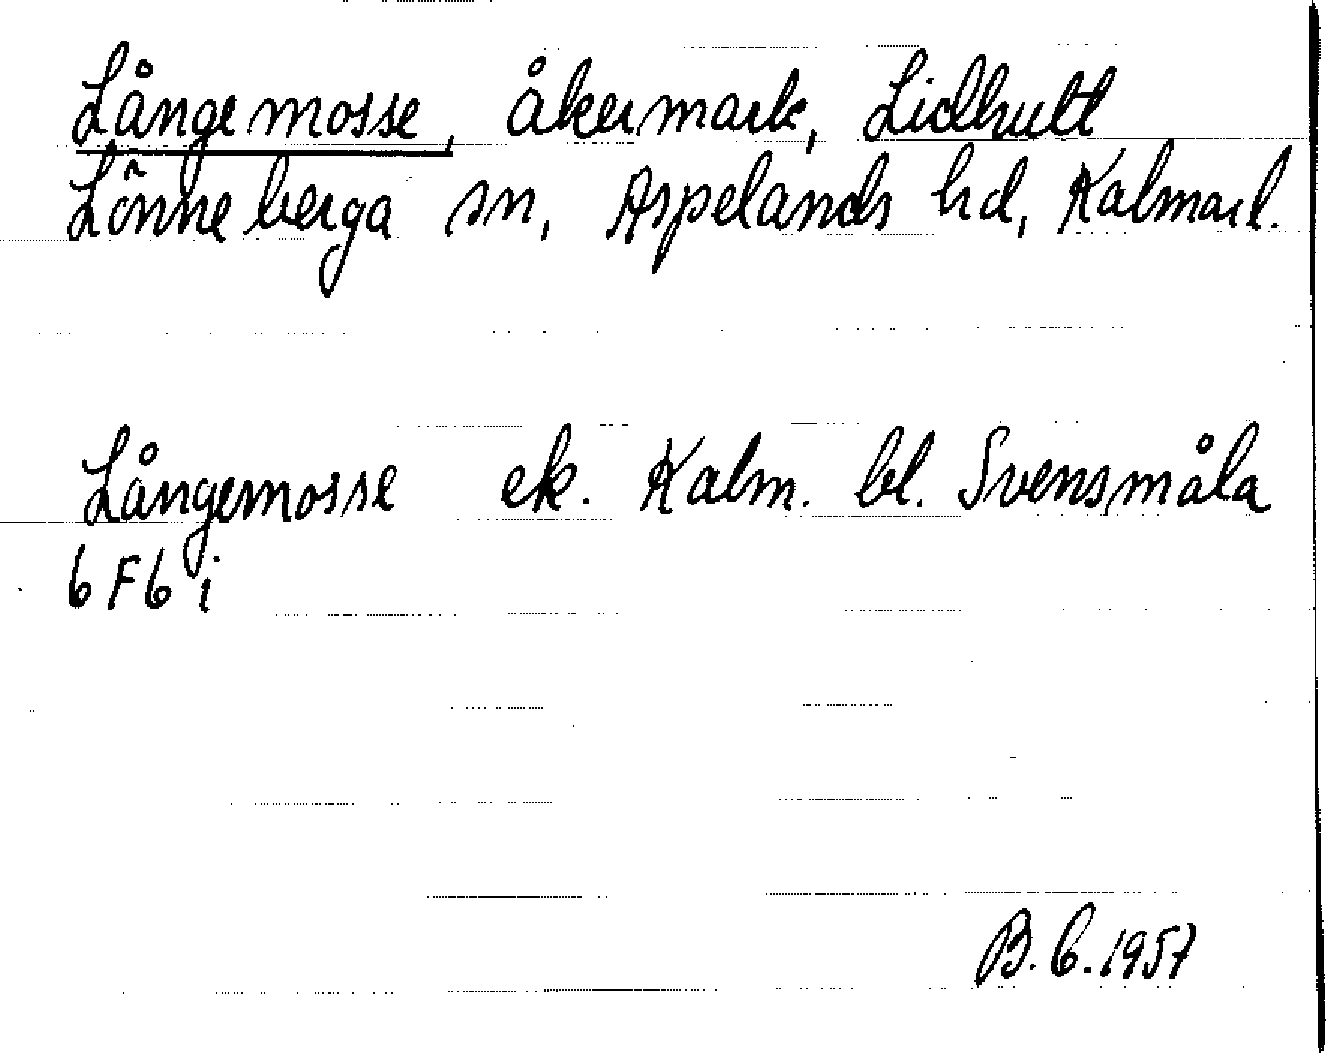 Långemosse, åkermark, Lidhult
Lönneberga sn, Aspelands hd, Kalmar l.
Långemosse ek. Kalm. bl. Svensmåla
6 F 6 i
B. C. 1957